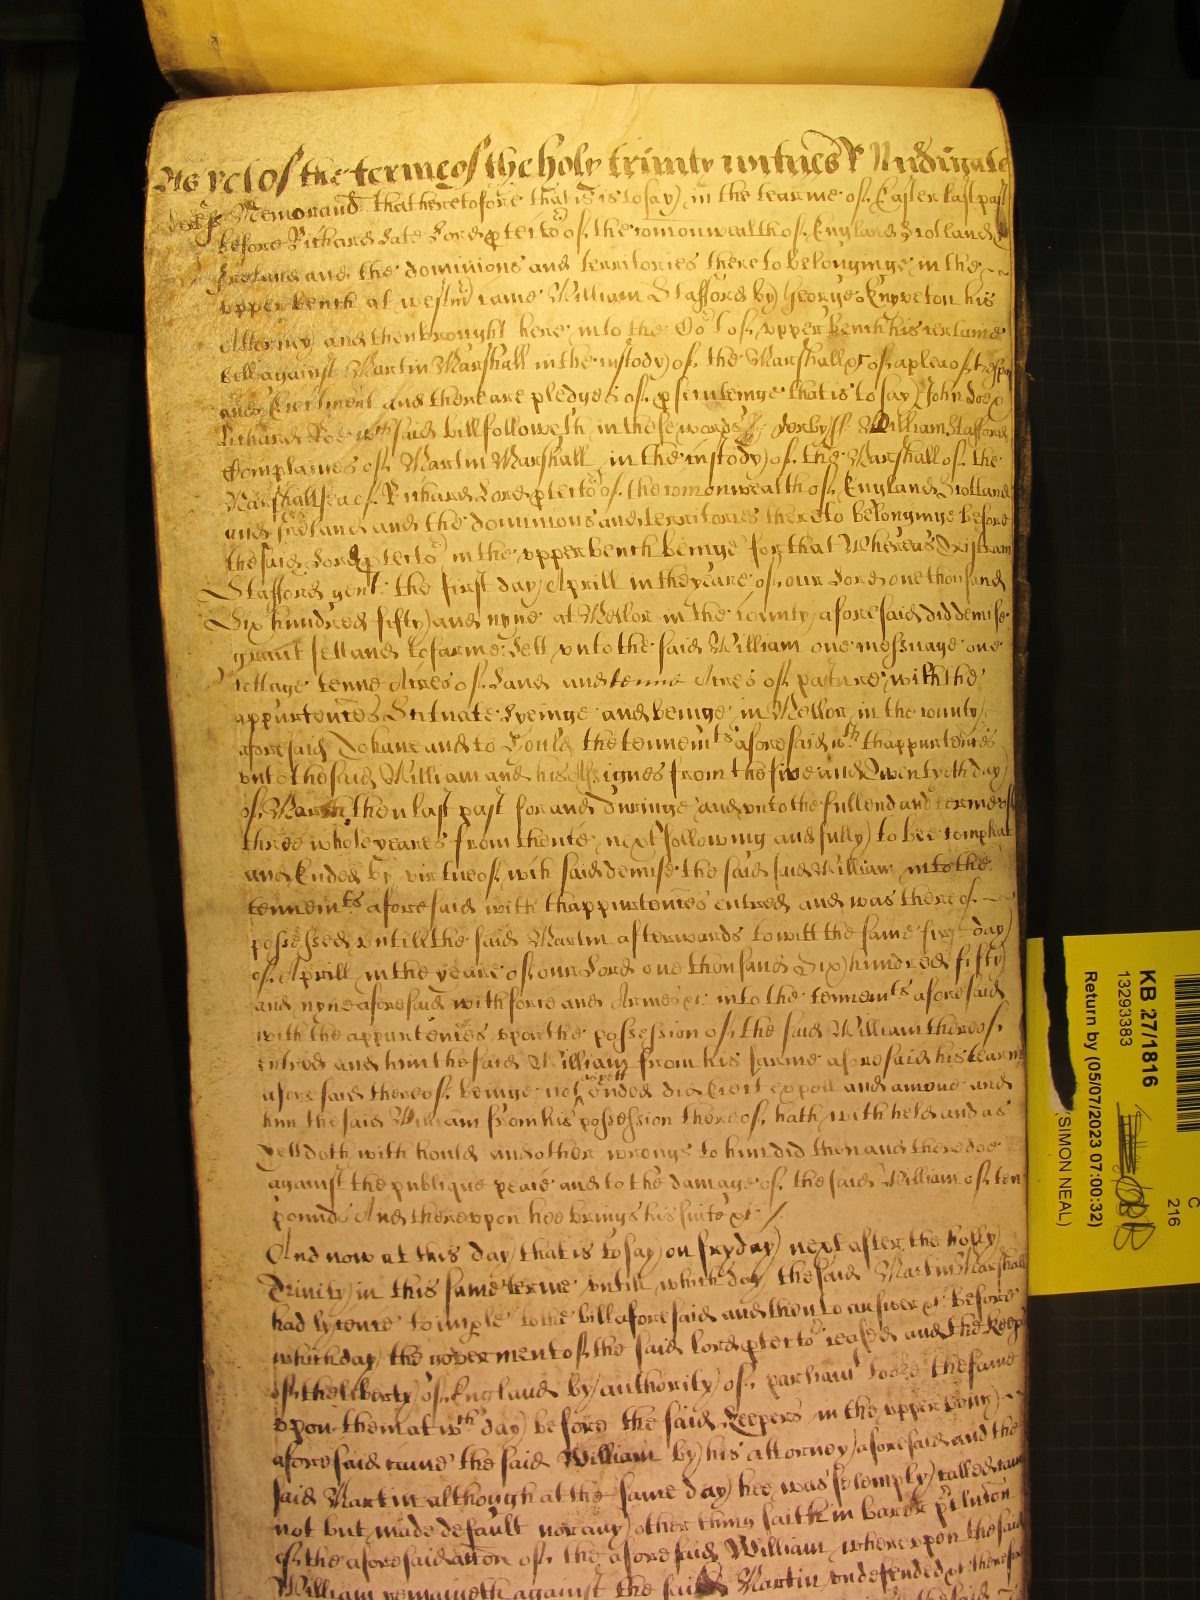 As yet of the terme of the holy trinity witnes R Nudigate
Derb ss Memorand that heretofore that is is to say in the tearme of Easter last past
before Richard Late Lord pterto of the comonwealth of England Scotland &
Ireland and the dominions and territories thereto belonginge in the
upper bench at westm came William Stafford by George Knyveton his
Attorney and then brought here into the Co't of upper bench his certaine
bill against Martin Marshall in the custody of the Marshall &c of a plea of trespas
and Eiectment and there are pledges of pscuteinge that is to say John Doe &
Richard Roe wch said bill followeth in these words ss Derby ss William Stafford
Complaines of Martin Marshall in the custody of the Marshall of the
Marshallsea of Richard Lord pterto of the comonwealth of England Scotland
and Ireland and the dominions and territories thereto belonginge before
the said Lord pterto in the upper bench beinge for that Whereas Tristram
Stafford gent the first day Aprill in the yeare of our Lord one thousand
Six hundred fifty and nyne at Mellor in the County aforesaid did demise
graunt sett and to farme Lett unto the said William one messuage one
cottage tenne Acres of Land and tenne Acres of pasture with the
appurtences Scituate Lyeinge and beinge in Mellor in the county
aforesaid To have and to Hould the tennemts aforesaid wth thappurtences
unto the said William and his Assignes from the five and Twentyeth day
of March then last past for and duringe and unto the full end and terme of
three whole yeares from thence next following and fully to bee compleat
and Ended by virtue of wch said demise the said said William into the
tennemts aforesaid with thappurtences entred and was thereof
possessed untill the said Martin afterwards to witt the same first day
of Aprill in the yeare of our Lord one thousand Six hundred fifty
and nyne aforesaid with force and Armes &c into the tennemts aforesaid
with the appurtences upon the possession of the said William thereof
entred and him the said William from his farme aforesaid his tearme
aforesaid thereof beinge not yett ended did Eiect expell and amove and
him the said William from his possession thereof hath with held and as
yett doth with hould and other wrongs to him did then and there doe
against the publique peace and to the damage of the said William of ten
pounds And thereupon hee brings his suite &c /
And now at this day that is to say on fryday next after the holly
Trinity in this same terme untill which day the said Martin Marshall
had lycence to imple to the bill aforesaid and then to answer &c before
which day the goverment of the said lord pterto ceased and the Keep
of the liberty of England by authority of parliamt tooke the same
upon them at wch day before the said Keepers in the upper bench
aforesaid came the said William by his attorney aforesaid and the
said Martin although at the same day hee was solemply called came
not but made default nor any other thing saith in barr or pclusion
of the aforesaid accon of the aforesaid William whereupon the said
William remaineth against the said Martin undefended &c therefore
KB 27/1816
13293383
Return by (05/07/2023 07:00:32)
(SIMON NEAL)
C
216